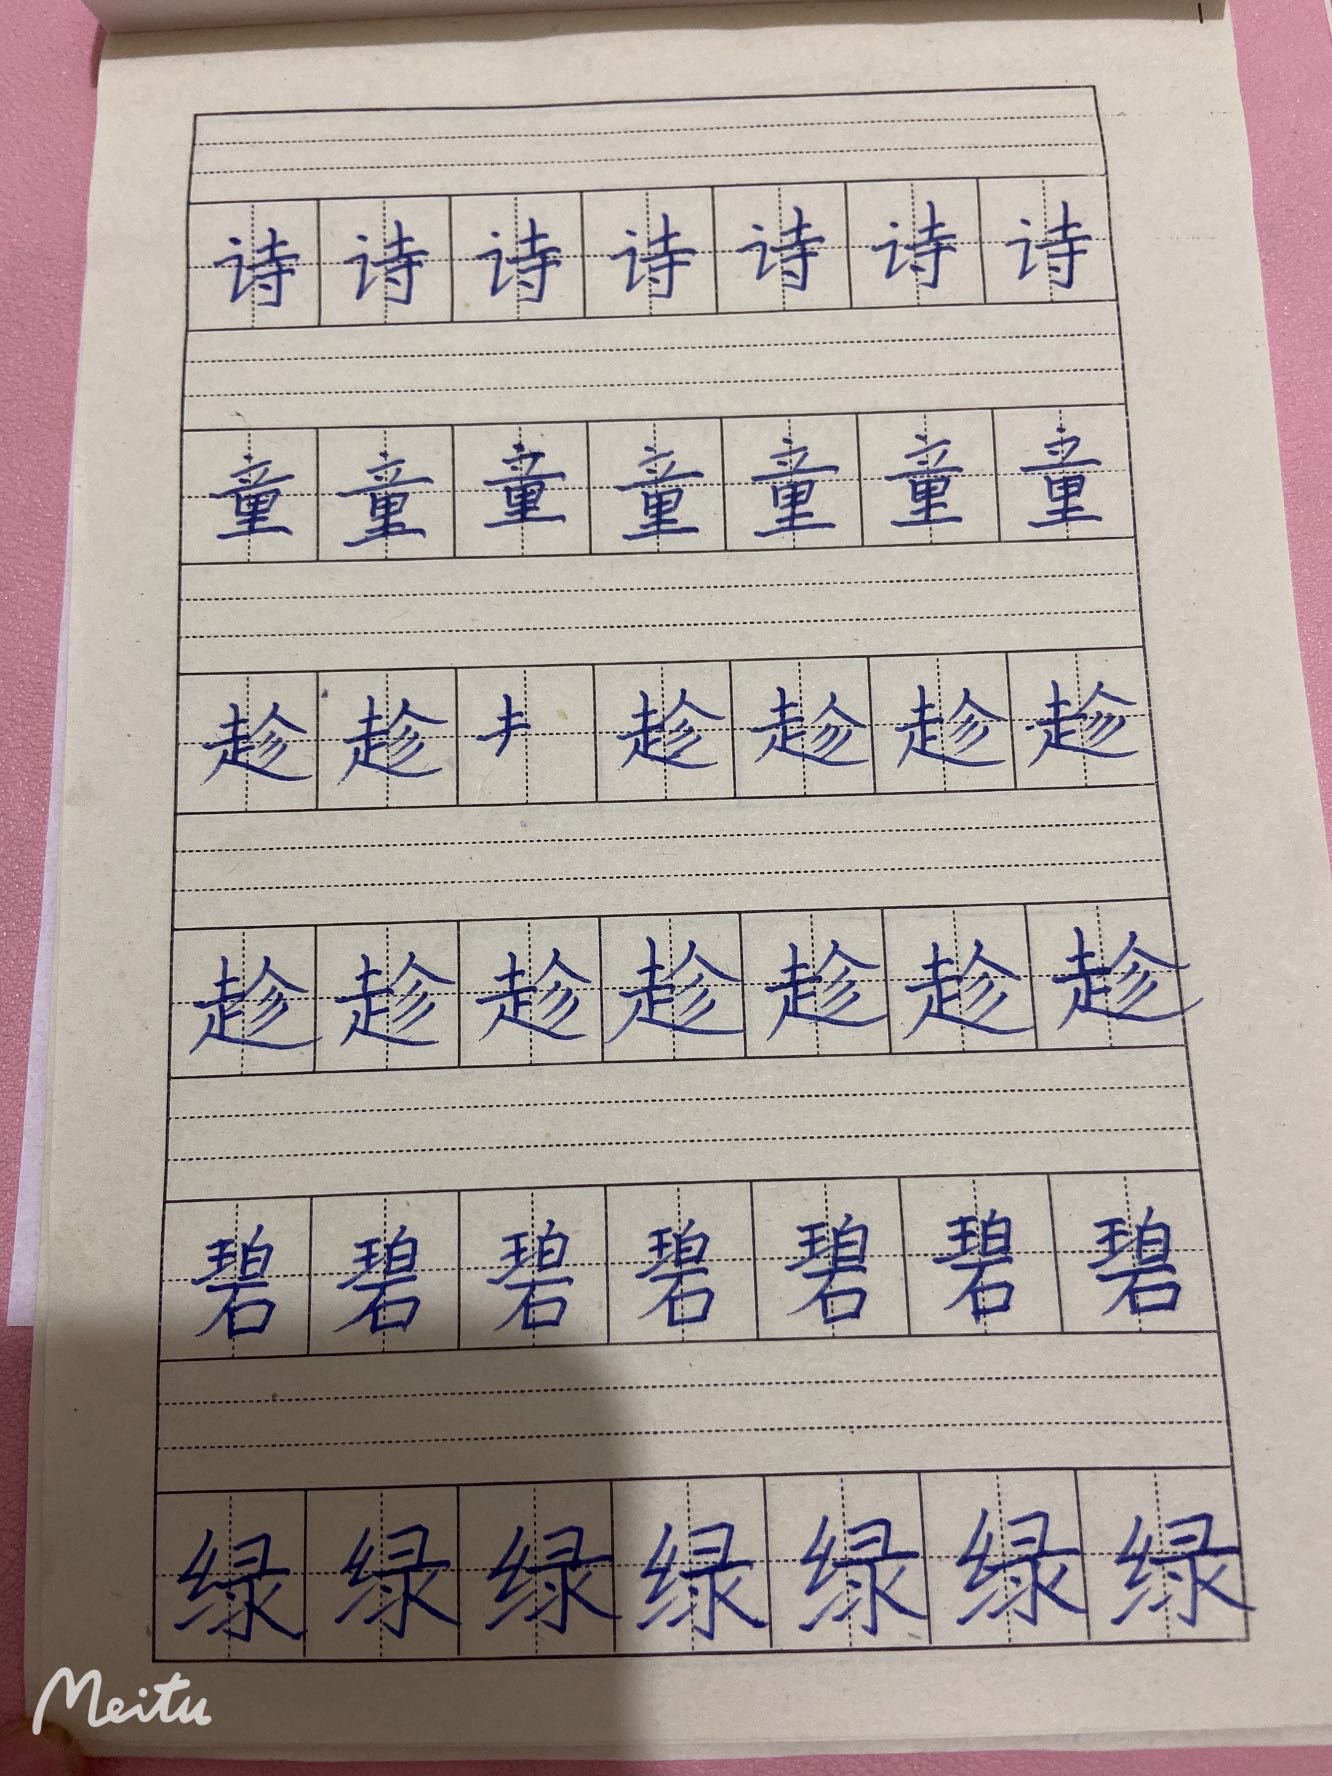 诗诗诗诗诗诗诗
童童童童童童童
趁趁趁趁趁趁
趁趁趁趁趁趁趁
碧碧碧碧碧碧碧
绿绿绿绿绿绿绿
Meitu